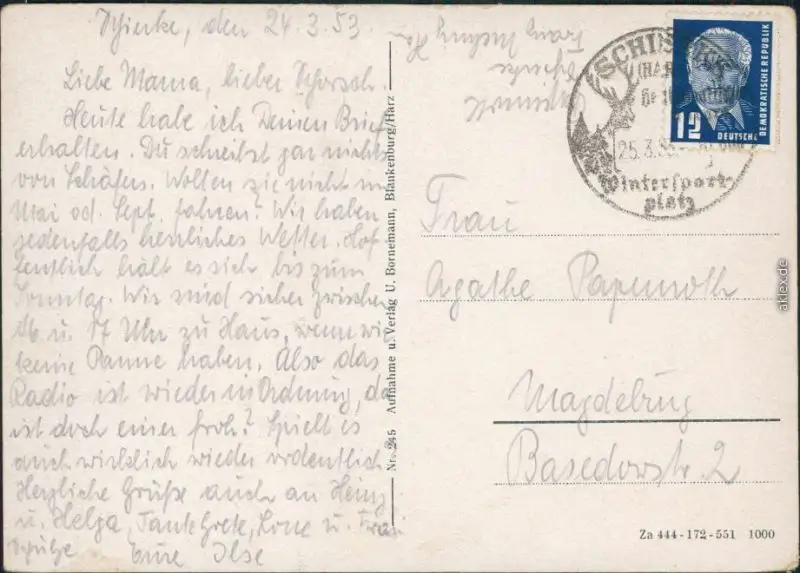 Schierke, den 24.3.53.
Liebe Mama, lieber Schorsch
Heute habe ich Deinen Brief
erhalten. Du schreibst gar nichts
von Schäfers. Wollten sie nicht im
Mai od. Sept. fahren? Wir haben
jedenfalls herrliches Wetter. Hof
fentlich hält es sich bis zum
Sonntag. Wir sind sicher zwischen
16 u. 17 Uhr zu Haus, wenn wir
keine Panne haben. Also das
Radio ist wieder in Ordnung, da
ist doch einer froh? Spielt es
auch wirklich wieder ordentlich
Herzliche Grüße auch an Heinz
u. Helga, Tante Grete, Lone u. Frau
Schulze Eure Ilse
Nr. 245 Aufnahme u. Verlag U. Bornemann, Blankenburg/Harz
SCHIERKE
(HARZ)
25.3.53
Wintersport-
platz
12 DEUTSCHE
DEMOKRATISCHE REPUBLIK
Frau
Agathe Papenroth
Magdeburg
Basedowstr. 2
Za 444-172-551 1000
aklex.de